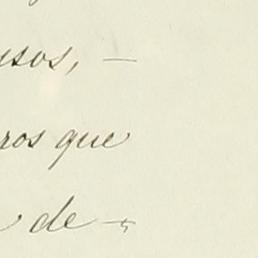 usos, —
ros que
de -